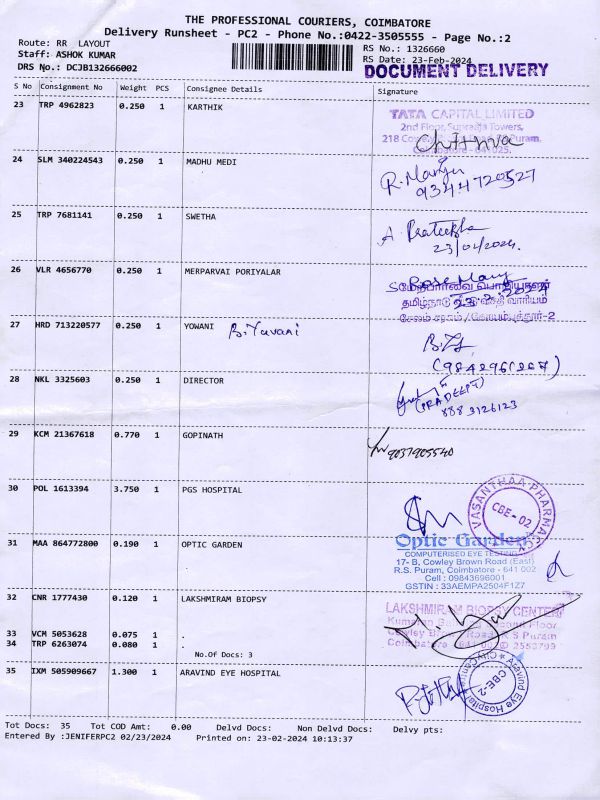 THE PROFESSIONAL COURIERS, COIMBATORE
Delivery Runsheet - PC2 - Phone No.:0422-3505555 - Page No.:2
Route: RR LAYOUT
Staff: ASHOK KUMAR
DRS No.: DCJB132666002
RS No.: 1326660
RS Date: 23-Feb-2024
DOCUMENT DELIVERY
S No Consignment No Weight PCS Consignee Details Signature
23 TRP 4962823 0.250 1 KARTHIK
TATA CAPITAL LIMITED
2nd Floor, Supraja Towers,
24 SLM 340224543 0.250 1 MADHU MEDI
R. Manju
9344720527
25 TRP 7681141 0.250 1 SWETHA
A. Prateeksha
23/02/2024.
26 VLR 4656770 0.250 1 MERPARVAI PORIYALAR
மேற்பார்வை பொறியாளர்
27 HRD 713220577 0.250 1 YOWANI B. Yuvani
28 NKL 3325603 0.250 1 DIRECTOR
(PRADEEPT)
8883126123
29 KCM 21367618 0.770 1 GOPINATH
9037905540
30 POL 1613394 3.750 1 PGS HOSPITAL
VASANTHAA PHARMACY
CBE-02
31 MAA 864772800 0.190 1 OPTIC GARDEN
Optic Garden
COMPUTERISED EYE TESTING
17- B, Cowley Brown Road (East)
R.S. Puram, Coimbatore - 641 002
Cell : 09843696001
GSTIN : 33AEMPA2504F1Z7
32 CNR 1777430 0.120 1 LAKSHMIRAM BIOPSY
LAKSHMIRAM BIOPSY CENTER
33 VCM 5053628 0.075 1 .
34 TRP 6263074 0.080 1 .
No.Of Docs: 3
35 IXM 505909667 1.300 1 ARAVIND EYE HOSPITAL
Aravind Eye Hospital
CBE-2
Tot Docs: 35 Tot COD Amt: 0.00 Delvd Docs: Non Delvd Docs: Delvy pts:
Entered By :JENIFERPC2 02/23/2024 Printed on: 23-02-2024 10:13:37